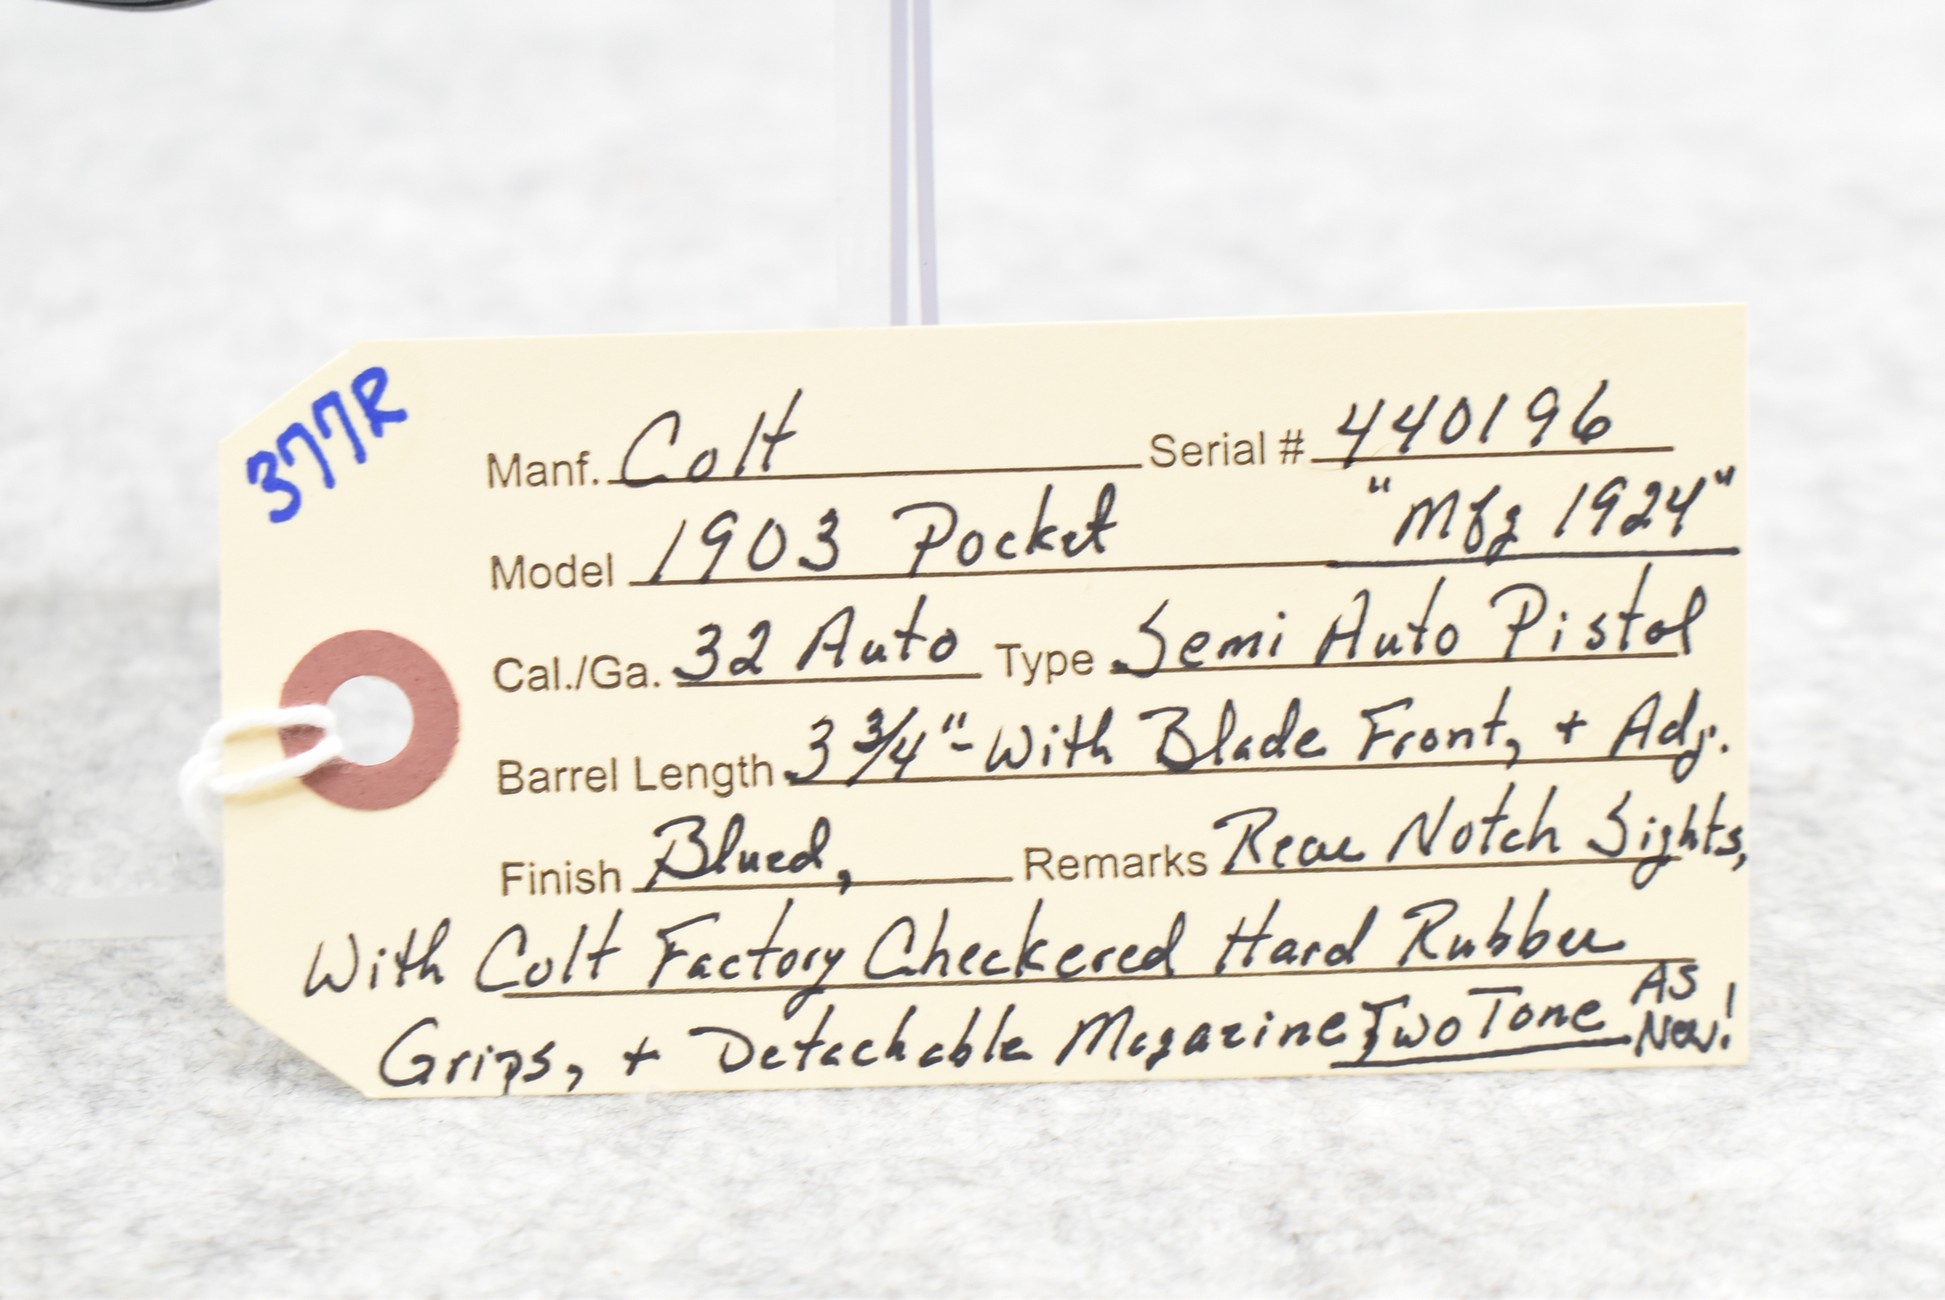 377R
Manf. Colt Serial # 440196
Model 1903 Pocket "Mfg 1924"
Cal./Ga. 32 Auto Type Semi Auto Pistol
Barrel Length 3 3/4"- With Blade Front, + Adj.
Finish Blued, Remarks Rear Notch Sights,
With Colt Factory Checkered Hard Rubber
Grips, + Detachable Magazine Two Tone As New!